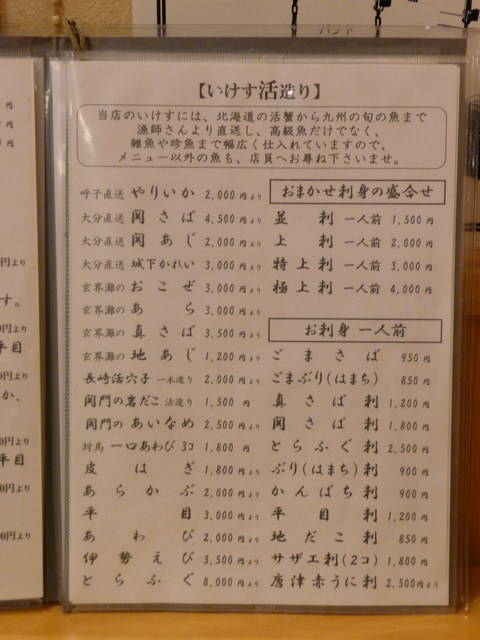 【いけす活造り】
当店のいけすには、北海道の活蟹から九州の旬の魚まで
漁師さんより直送し、高級魚だけでなく、
雑魚や珍魚まで幅広く仕入れていますので、
メニュー以外の魚も、店員へお尋ね下さいませ。
呼子直送 やりいか 2,000円より
大分直送 関さば 4,500円より
大分直送 関あじ 2,000円より
大分直送 城下かれい 3,000円より
玄界灘の おこぜ 3,000円より
玄界灘の あら 3,000円より
玄界灘の 真さば 3,500円より
玄界灘の 地あじ 1,200円より
長崎活穴子 一本造り 2,000円より
関門の岩だこ 活造り 1,500円
関門のあいなめ 2,500円より
対馬 一口あわび 3コ 1,800円
皮はぎ 1,800円より
あらかぶ 2,000円より
平目 3,000円より
あわび 2,000円より
伊勢えび 3,500円より
とらふぐ 8,000円より
おまかせ刺身の盛合せ
並刺 一人前 1,500円
上刺 一人前 2,000円
特上刺 一人前 3,000円
極上刺 一人前 4,000円
お刺身 一人前
ごまさば 950円
ごまぶり(はまち) 850円
真さば刺 1,200円
関さば刺 1,800円
とらふぐ刺 2,500円
ぶり(はまち)刺 900円
かんぱち刺 900円
平目刺 1,200円
地だこ刺 850円
サザエ刺(2コ) 1,800円
唐津赤うに刺 2,500円より
円
円
円
円より
す。
0円より
平目
0円より
か、
0円より
平目
0円より
00円より